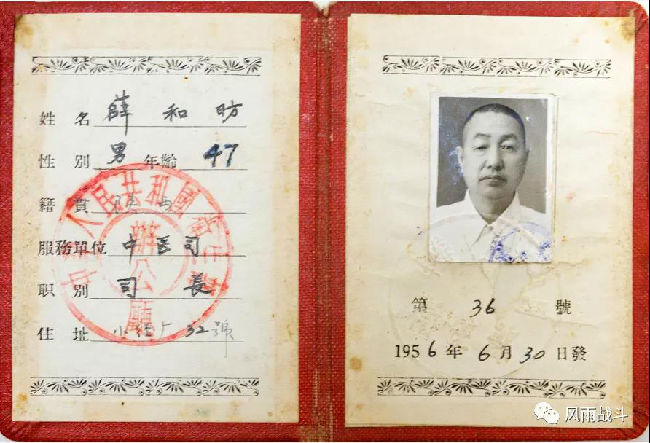 姓名 薛和昉
性别 男 年齡 47
籍貫
服務單位 中医司
职别 司長
住址 32號
中 人民共和國
辦公廳
第 36 號
1956年6月30日發
风雨战斗